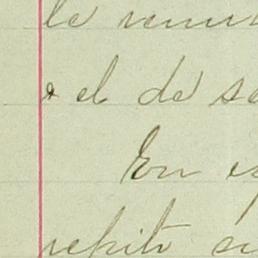 le remi
o el de se
En es
repito su